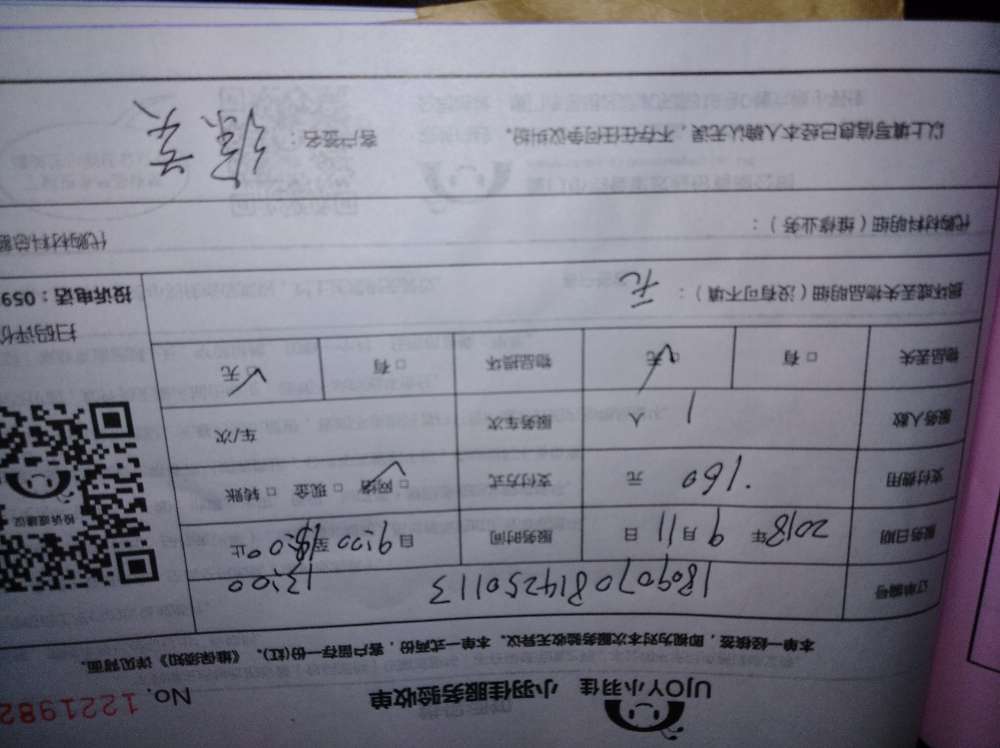 UJOY小羽佳 小羽佳服务验收单 No. 1221982
本单一经核签，即视为对本次服务验收无异议。本单一式两份，客户留存一份(红)。《维保须知》详见背面。
订单编号 18090708142501113
13:00
服务日期 2018年 9月11日 服务时间 自9:00至 止
支付费用 160 元 支付方式 □网络 □现金 □转账
服务人数 1 人 服务车次 车/次
物品丢失 □有 □无 物品损坏 □有 □无
损坏或丢失物品明细（没有可不填）：无
代购材料明细（维修业务）： 代购材料总
以上填写信息已经本人确认无误，不存在任何争议纠纷。 客户签名：
投诉或建议
扫码评价
投诉电话：059